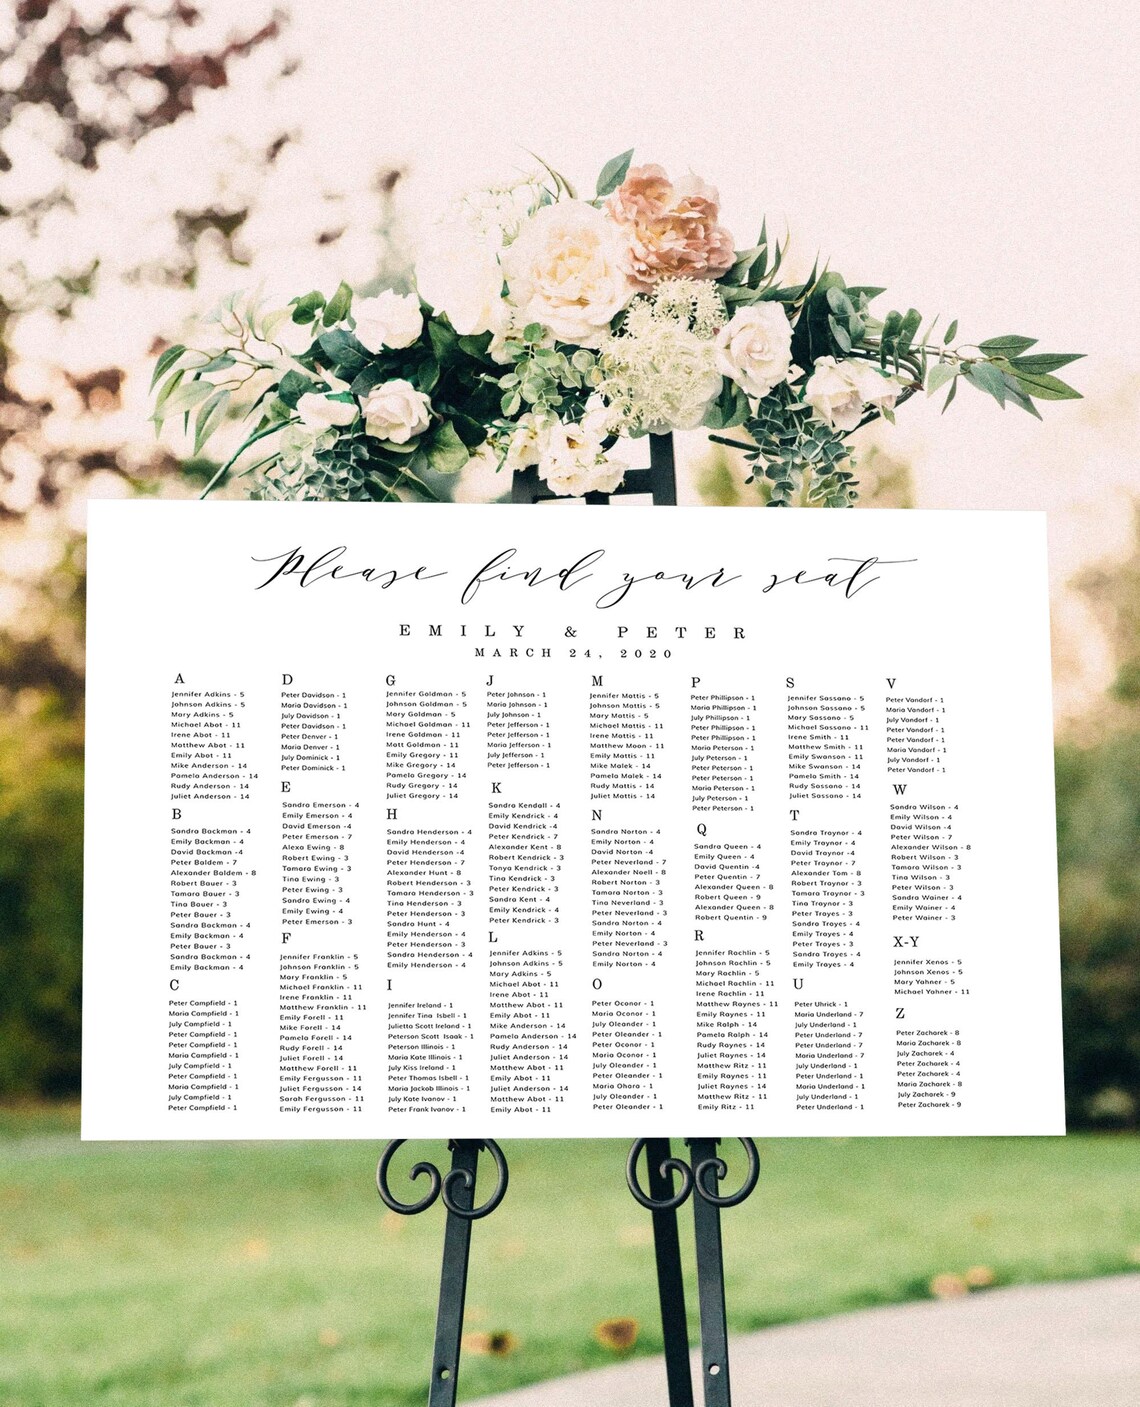 Please find your seat
EMILY & PETER
MARCH 24, 2020
A
Jennifer Adkins - 5
Johnson Adkins - 5
Mary Adkins - 5
Michael Abot - 11
Irene Abot - 11
Matthew Abot - 11
Emily Abot - 11
Mike Anderson - 14
Pamela Anderson - 14
Rudy Anderson - 14
Juliet Anderson - 14
B
Sandra Backman - 4
Emily Backman - 4
David Backman -4
Peter Baldem - 7
Alexander Baldem - 8
Robert Bauer - 3
Tamara Bauer - 3
Tina Bauer - 3
Peter Bauer - 3
Sandra Backman - 4
Emily Backman - 4
Peter Bauer - 3
Sandra Backman - 4
Emily Backman - 4
C
Peter Campfield - 1
Maria Campfield - 1
July Campfield - 1
Peter Campfield - 1
Peter Campfield - 1
Maria Campfield - 1
July Campfield - 1
Peter Campfield - 1
Maria Campfield - 1
July Campfield - 1
Peter Campfield - 1
D
Peter Davidson - 1
Maria Davidson - 1
July Davidson - 1
Peter Davidson - 1
Peter Denver - 1
Maria Denver - 1
July Dominick - 1
Peter Dominick - 1
E
Sandra Emerson - 4
Emily Emerson - 4
David Emerson -4
Peter Emerson - 7
Alexa Ewing - 8
Robert Ewing - 3
Tamara Ewing - 3
Tina Ewing - 3
Peter Ewing - 3
Sandra Ewing - 4
Emily Ewing - 4
Peter Emerson - 3
F
Jennifer Franklin - 5
Johnson Franklin - 5
Mary Franklin - 5
Michael Franklin - 11
Irene Franklin - 11
Matthew Franklin - 11
Emily Forell - 11
Mike Forell - 14
Pamela Forell - 14
Rudy Forell - 14
Juliet Forell - 14
Matthew Forell - 11
Emily Fergusson - 11
Juliet Fergusson - 14
Sarah Fergusson - 11
Emily Fergusson - 11
G
Jennifer Goldman - 5
Johnson Goldman - 5
Mary Goldman - 5
Michael Goldman - 11
Irene Goldman - 11
Matt Goldman - 11
Emily Gregory - 11
Mike Gregory - 14
Pamela Gregory - 14
Rudy Gregory - 14
Juliet Gregory - 14
H
Sandra Henderson - 4
Emily Henderson - 4
David Henderson -4
Peter Henderson - 7
Alexander Hunt - 8
Robert Henderson - 3
Tamara Henderson - 3
Tina Henderson - 3
Peter Henderson - 3
Sandra Hunt - 4
Emily Henderson - 4
Peter Henderson - 3
Sandra Henderson - 4
Emily Henderson - 4
I
Jennifer Ireland - 1
Jennifer Tina Isbell - 1
Julietta Scott Ireland - 1
Peterson Scott Isaak - 1
Peterson Illinois - 1
Maria Kate Illinois - 1
July Kiss Ireland - 1
Peter Thomas Isbell - 1
Maria Jackob Illinois - 1
July Kate Ivanov - 1
Peter Frank Ivanov - 1
J
Peter Johnson - 1
Maria Johnson - 1
July Johnson - 1
Peter Jefferson - 1
Peter Jefferson - 1
Maria Jefferson - 1
July Jefferson - 1
Peter Jefferson - 1
K
Sandra Kendall - 4
Emily Kendrick - 4
David Kendrick -4
Peter Kendrick - 7
Alexander Kent - 8
Robert Kendrick - 3
Tonya Kendrick - 3
Tina Kendrick - 3
Peter Kendrick - 3
Sandra Kent - 4
Emily Kendrick - 4
Peter Kendrick - 3
L
Jennifer Adkins - 5
Johnson Adkins - 5
Mary Adkins - 5
Michael Abot - 11
Irene Abot - 11
Matthew Abot - 11
Emily Abot - 11
Mike Anderson - 14
Pamela Anderson - 14
Rudy Anderson - 14
Juliet Anderson - 14
Matthew Abot - 11
Emily Abot - 11
Juliet Anderson - 14
Matthew Abot - 11
Emily Abot - 11
M
Jennifer Mattis - 5
Johnson Mattis - 5
Mary Mattis - 5
Michael Mattis - 11
Irene Mattis - 11
Matthew Moon - 11
Emily Mattis - 11
Mike Malek - 14
Pamela Malek - 14
Rudy Mattis - 14
Juliet Mattis - 14
N
Sandra Norton - 4
Emily Norton - 4
David Norton -4
Peter Neverland - 7
Alexander Noell - 8
Robert Norton - 3
Tamara Norton - 3
Tina Neverland - 3
Peter Neverland - 3
Sandra Norton - 4
Emily Norton - 4
Peter Neverland - 3
Sandra Norton - 4
Emily Norton - 4
O
Peter Oconor - 1
Maria Oconor - 1
July Oleander - 1
Peter Oleander - 1
Peter Oconor - 1
Maria Oconor - 1
July Oleander - 1
Peter Oleander - 1
Maria Ohara - 1
July Oleander - 1
Peter Oleander - 1
P
Peter Phillipson - 1
Maria Phillipson - 1
July Phillipson - 1
Peter Phillipson - 1
Peter Phillipson - 1
Maria Peterson - 1
July Peterson - 1
Peter Peterson - 1
Peter Peterson - 1
Maria Peterson - 1
July Peterson - 1
Peter Peterson - 1
Q
Sandra Queen - 4
Emily Queen - 4
David Quentin -4
Peter Quentin - 7
Alexander Queen - 8
Robert Queen - 9
Alexander Queen - 8
Robert Quentin - 9
R
Jennifer Rachlin - 5
Johnson Rachlin - 5
Mary Rachlin - 5
Michael Rachlin - 11
Irene Rachlin - 11
Matthew Raynes - 11
Emily Raynes - 11
Mike Ralph - 14
Pamela Ralph - 14
Rudy Raynes - 14
Juliet Raynes - 14
Matthew Ritz - 11
Emily Raynes - 11
Juliet Raynes - 14
Matthew Ritz - 11
Emily Ritz - 11
S
Jennifer Sassano - 5
Johnson Sassano - 5
Mary Sassano - 5
Michael Sassano - 11
Irene Smith - 11
Matthew Smith - 11
Emily Swanson - 11
Mike Swanson - 14
Pamela Smith - 14
Rudy Sassano - 14
Juliet Sassano - 14
T
Sandra Traynor - 4
Emily Traynor - 4
David Traynor -4
Peter Traynor - 7
Alexander Tam - 8
Robert Traynor - 3
Tamara Traynor - 3
Tina Traynor - 3
Peter Trayes - 3
Sandra Trayes - 4
Emily Trayes - 4
Peter Trayes - 3
Sandra Trayes - 4
Emily Trayes - 4
U
Peter Uhrick - 1
Maria Underland - 7
July Underland - 1
Peter Underland - 7
Peter Underland - 1
Maria Underland - 7
July Underland - 1
Peter Underland - 1
Maria Underland - 1
July Underland - 1
Peter Underland - 1
V
Peter Vandorf - 1
Maria Vandorf - 1
July Vandorf - 1
Peter Vandorf - 1
Peter Vandorf - 1
Maria Vandorf - 1
July Vandorf - 1
Peter Vandorf - 1
W
Sandra Wilson - 4
Emily Wilson - 4
David Wilson -4
Peter Wilson - 7
Alexander Wilson - 8
Robert Wilson - 3
Tamara Wilson - 3
Tina Wilson - 3
Peter Wilson - 3
Sandra Wainer - 4
Emily Wainer - 4
Peter Wainer - 3
X-Y
Jennifer Xenos - 5
Johnson Xenos - 5
Mary Yahner - 5
Michael Yahner - 11
Z
Peter Zacharek - 8
Maria Zacharek - 8
July Zacharek - 4
Peter Zacharek - 4
Peter Zacharek - 4
Maria Zacharek - 8
July Zacharek - 9
Peter Zacharek - 9